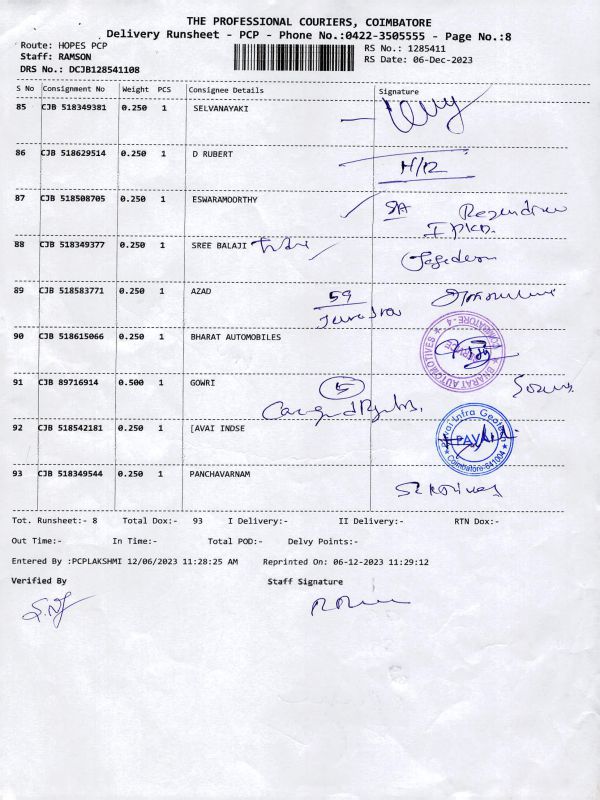 THE PROFESSIONAL COURIERS, COIMBATORE
Delivery Runsheet - PCP - Phone No.:0422-3505555 - Page No.:8
Route: HOPES PCP
RS No.: 1285411
Staff: RAMSON
RS Date: 06-Dec-2023
DRS No.: DCJB128541108
S No Consignment No Weight PCS Consignee Details Signature
85 CJB 518349381 0.250 1 SELVANAYAKI
86 CJB 518629514 0.250 1 D RUBERT
87 CJB 518508705 0.250 1 ESWARAMOORTHY
88 CJB 518349377 0.250 1 SREE BALAJI
89 CJB 518583771 0.250 1 AZAD 59
90 CJB 518615066 0.250 1 BHARAT AUTOMOBILES
BHARAT AUTOMOTIVES COIMBATORE - 4
91 CJB 89716914 0.500 1 GOWRI 5
92 CJB 518542181 0.250 1 [AVAI INDSE
PAVAI Coimbatore-641004
93 CJB 518349544 0.250 1 PANCHAVARNAM
Tot. Runsheet:- 8 Total Dox:- 93 I Delivery:- II Delivery:- RTN Dox:-
Out Time:- In Time:- Total POD:- Delvy Points:-
Entered By :PCPLAKSHMI 12/06/2023 11:28:25 AM Reprinted On: 06-12-2023 11:29:12
Verified By Staff Signature